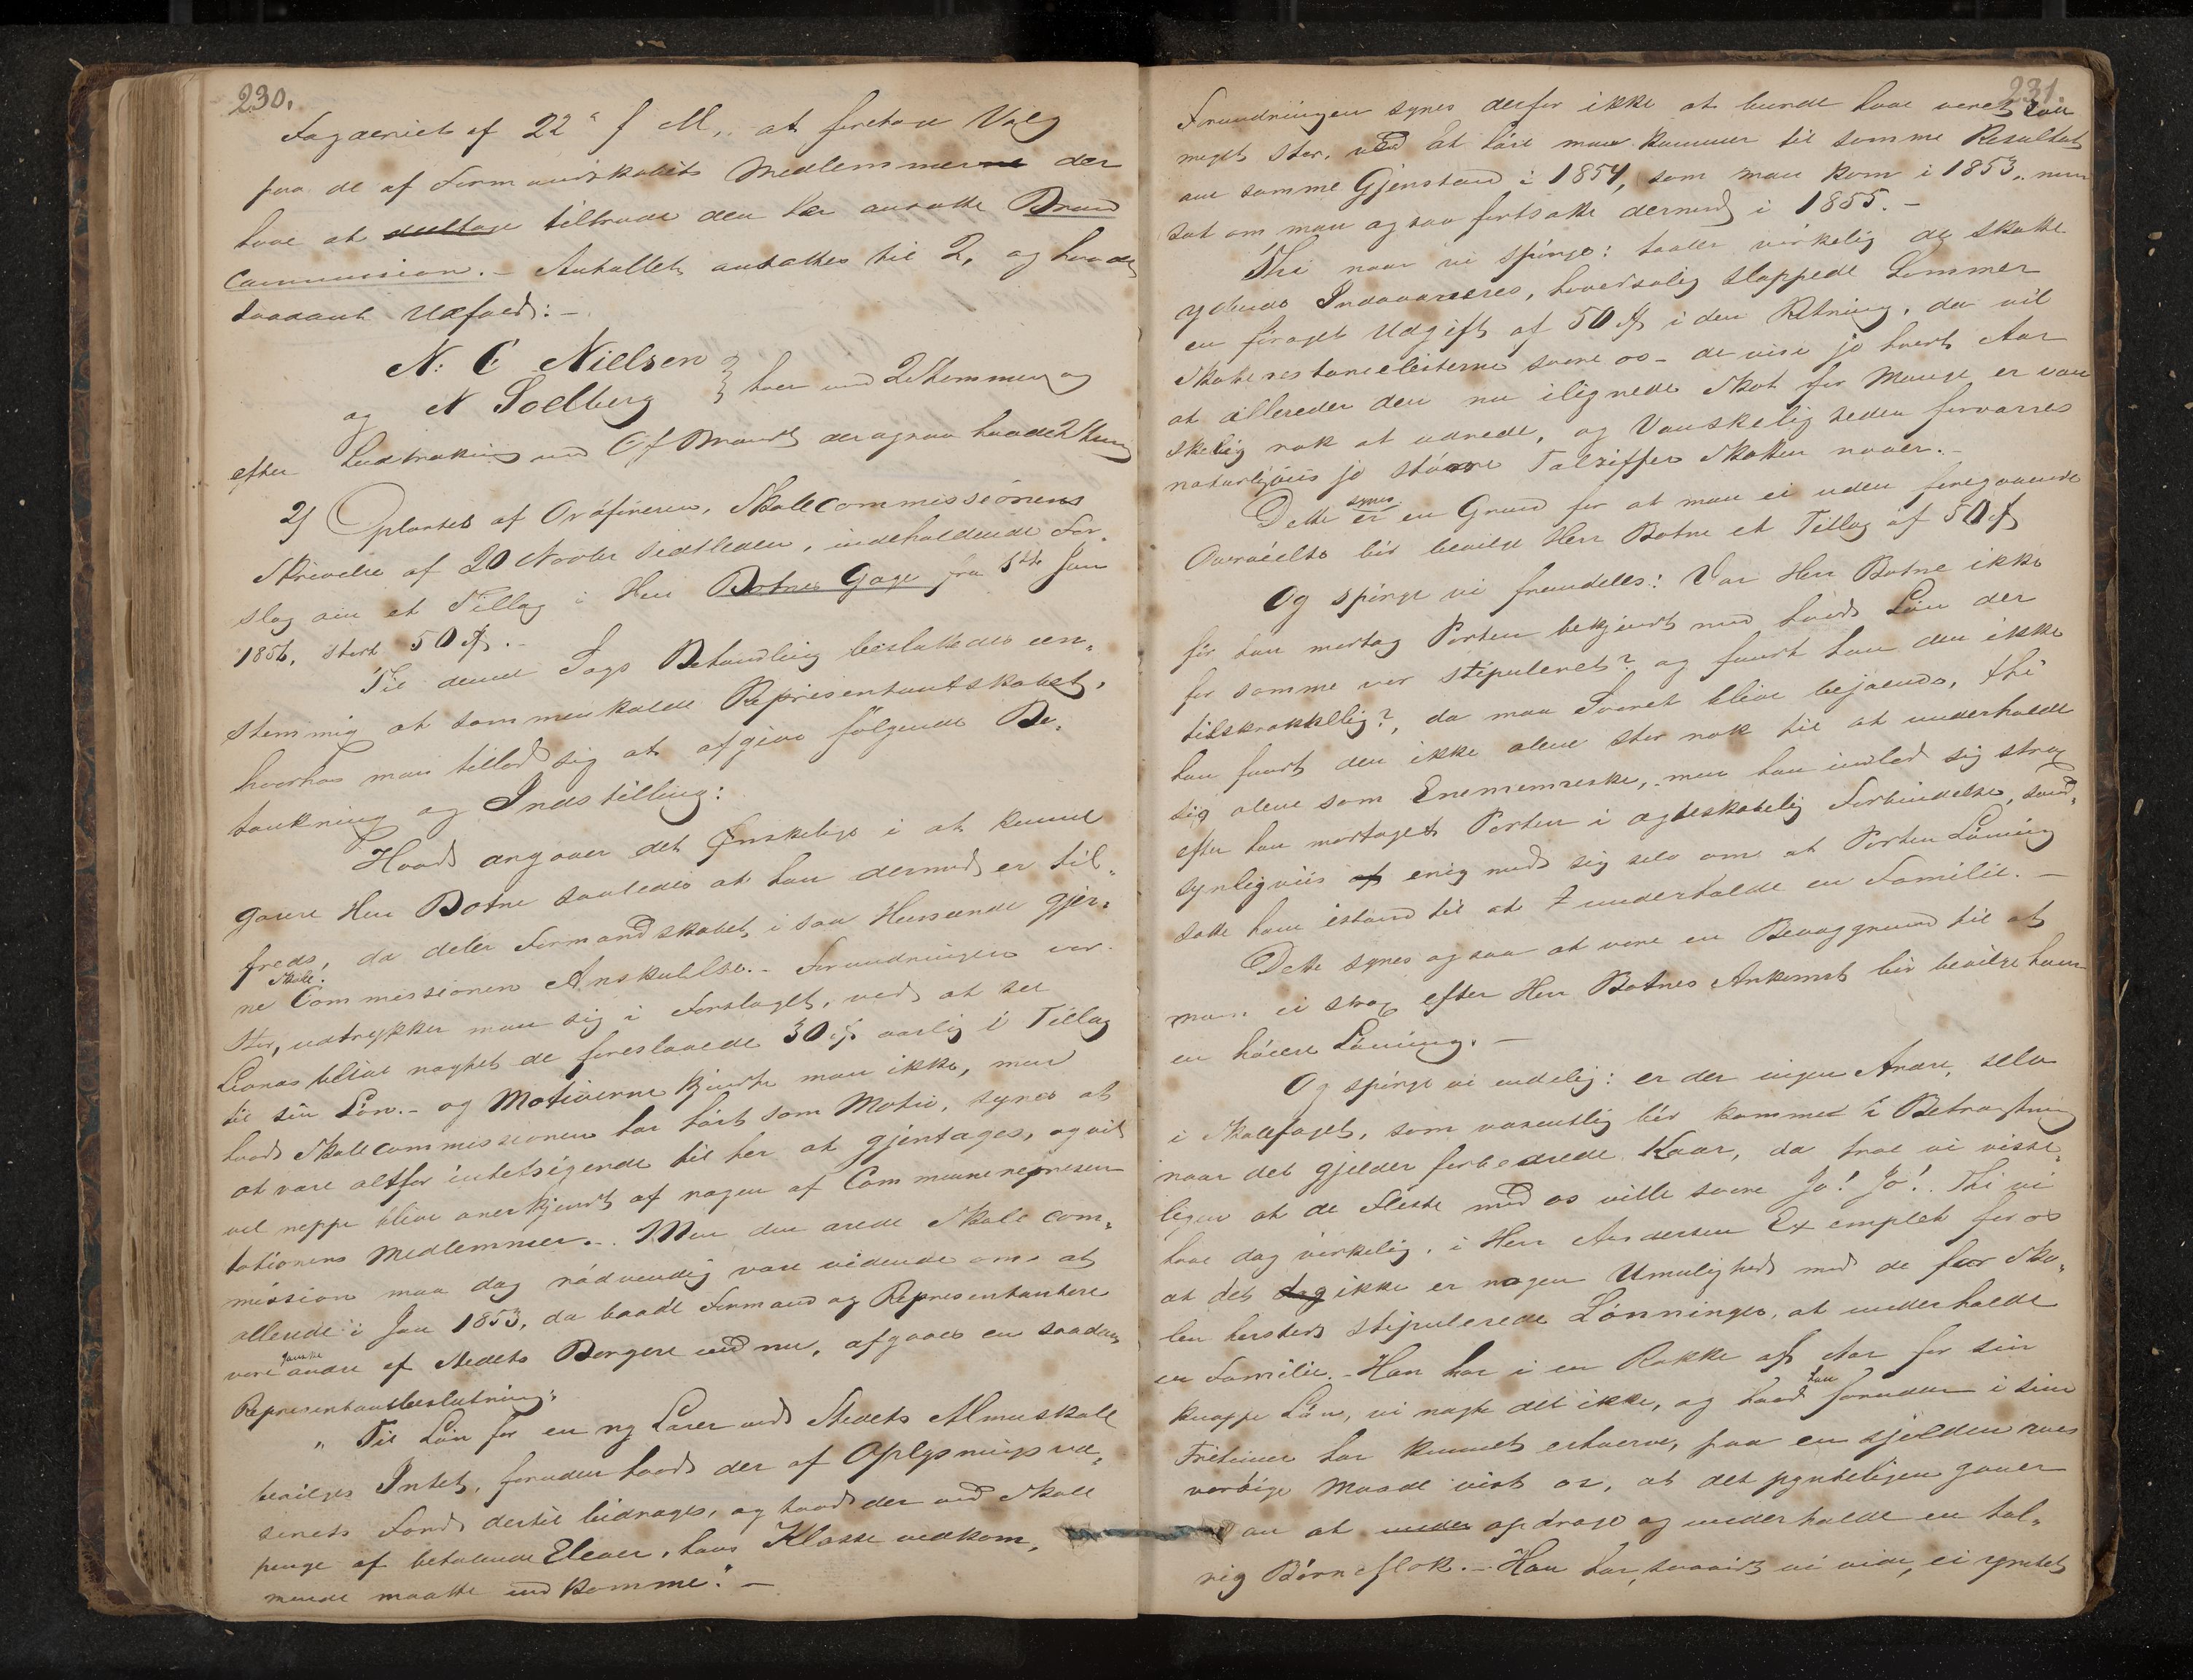 230.
Fogderiet af 22de f M, at foretage Valg
paa de af Formandskabets Medlemmerne der
have at deeltage tiltræde den her ansatte Brand
Commission. – Antallet ansattes til 2, og havde
saadant Udfald: –
N: C Nielsen
og N Solberg } hver med 2 Stemmer og
efter Lodtrækning med Of Brandt der ogsaa havde 2 Stem
2) Oplæstes af Ordføreren, Skolecommissionens
Skrivelse af 20 Novbr sidstleden, indeholdende For-
slag om et Tillæg i Herr Botnes Gage fra 1ste Jan
1856, stort 50 Spd. –
Til denne Sags Behandling besluttedes een-
stemmig at sammenkalde Repræsentantskabet,
hvorhos man tillod sig at afgive følgende Be-
tænkning og Indstilling:
Hvad angaaer det Ønskelige i at kunne
gjøre Herr Botne saaledes at han dermed er til-
freds, da deler Formandskabet i saa Henseende gjer-
ne Skole Commissionens Anskuelse. – Forundringen var
stor, udtrykker man sig i Forslaget, ved at see
Leonas blive nægtet de foreslaaede 30 Spd aarlig i Tillæg
til sin Løn. – og Motiverne kjendte man ikke, men
hvad Skolecommissionen har hørt som Motiv, synes at
at være altfor intetsigende til her at gjentages, og vil
vel neppe blive anerkjendt af nogen af Communerepræsen-
tationens Medlemmer. – Men den ærede Skolecom-
mission maa dog nødvendig være vidende om, at
allerede i Jan 1853, da baade Formænd og Repræsentantere
vare ganske andre af Stedets Borgere end nu, afgaaes en saadan
Repræsentantbeslutning:
" Til Løn for en ny Lærer ved Stedets Almueskole
bevilges Intet, foruden hvad der af Oplysningsvæ-
senets Fond dertil bidrages, og hvad der ved Skole
penge af betalende Elever, hans Klasse vedkom-
mende maatte indkomme." –
231.
Forundringen synes derfor ikke at burde have været saa
meget stor, ved at høre man kommer til samme Resultat
om samme Gjenstand i 1854, som man kom i 1853, uan
set om man ogsaa fortsatte dermed i 1855. –
Thi naar vi spørge: taaler virkelig de skatte
ydende Indvaaneres, hovedsalig slappede Lommer
en forøget Udgift af 50 Spd i den Retning, da vil
Skatterestancelisterne svare os – de vise jo hvert Aar
at allerede den nu ilignede Skat for Mange er van
skelig nok at udrede, og Vanskeligheden forværres
naturligviis jo større Talziffer Skatten naaer. –
Dette er synes en Grund for at man ei uden foregaaende
Overveielse bør bevilge Herr Botne et Tillæg af 50 Spd
Og spørge vi fremdeles: Var Herr Botne ikke
før han modtog Posten bekjendt med hvad Løn der
for samme var stipuleret? og fandt han den ikke
tilstrækkelig?, da maa Svaret blive bejaende, thi
han fandt den ikke alene stor nok til at underholde
sig alene som Enemenneske, men han indlod sig strax
efter han modtaget Posten i ægteskabelig Forbindelse, sand-
synligviis af enig med sig selv om at Posten Lønning
satte ham istand til at underholde en Familie. –
Dette synes ogsaa at være en Bevæggrund til at
man ei strax efter Herr Botnes Ankomst bør bevilge ham
en høiere Lønning. –
Og spørge vi endelig: er der ingen Andre, selv
i Skolefaget, som væsentlig bør kommer i Betragtning
naar det gjelder forbedrede Kaar, da troe vi visse-
ligen at de Fleste med os ville svare Ja! Ja! Thi vi
have dog virkelig, i Herr Andersen Exemplet for os
at det dog ikke er nogen Umulighed med de for Sko-
len hersteds stipulerede Lønninger, at underholde
en Familie. – Han har i en Række af Aar for sin
knappe Løn, vi nægte det ikke, og hvad han foruden i sine
Fritimer har kunnet erhverve, paa en sjelden roes
værdige Maade viist os, at det pynteligen gaaer
an at under opdrage og underholde en tal-
rig Børneflok. – Han har, hvorvidt vi vide, ei ymtet